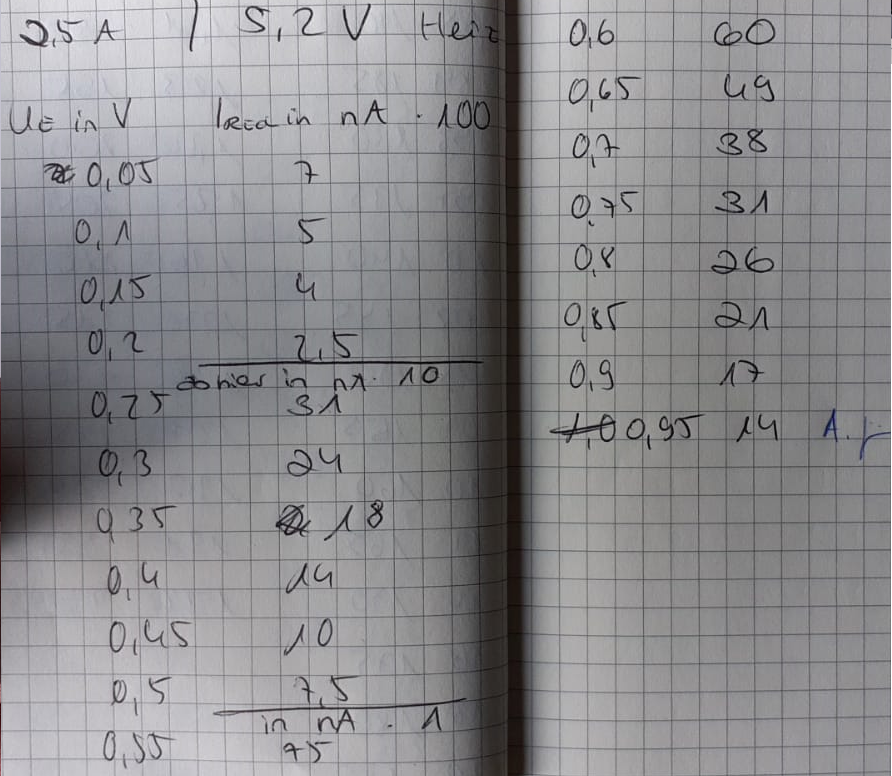 2,5 A / 5,2 V Heiz
UE in V IRed in nA · 100
0,05 7
0,1 5
0,15 4
0,2 2,5
ab hier in nA · 10
0,25 31
0,3 24
0,35 18
0,4 14
0,45 10
0,5 7,5
in nA · 1
0,55 75
0,6 60
0,65 49
0,7 38
0,75 31
0,8 26
0,85 21
0,9 17
1,0 0,95 14 A.